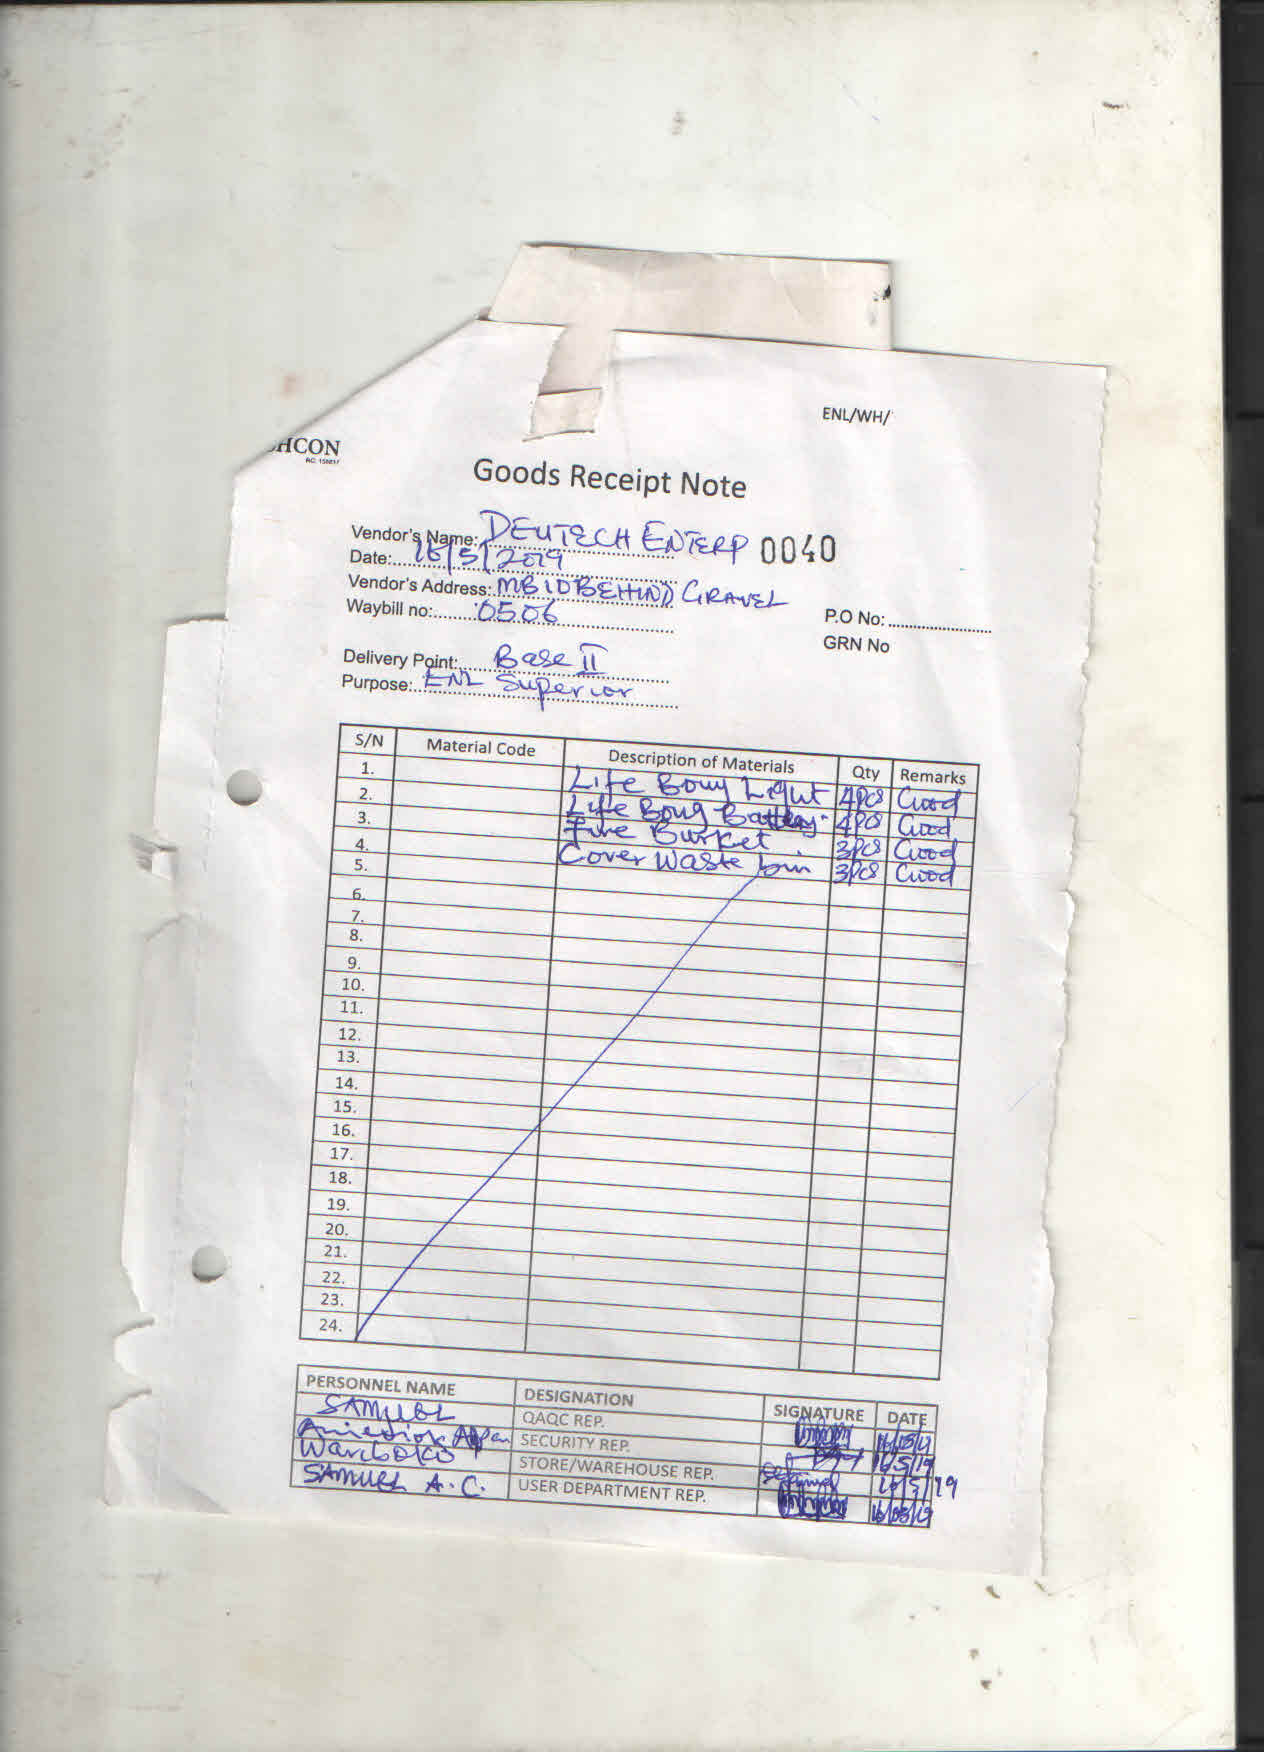 ENL/WH/
HCON
Goods Receipt Note
Vendor's Name: DEUTECH ENTERP 0040
Date: 16/5/2019
Vendor's Address: MB 10 BEHIND GRAVEL
Waybill no: 0506
P.O No:
GRN No
Delivery Point: Base II
Purpose: ENL Superior
S/N Material Code Description of Materials Qty Remarks
1. Life Bouy Light 4pcs Good
2. Life Boug Battery 4pcs Good
3. Fire Burket 3pcs Good
4. Cover Waste bin 3pcs Good
5.
6.
7.
8.
9.
10.
11.
12.
13.
14.
15.
16.
17.
18.
19.
20.
21.
22.
23.
24.
PERSONNEL NAME DESIGNATION SIGNATURE DATE
SAMUEL QAQC REP. 16/05/19
SECURITY REP. 16/5/19
Wariboko STORE/WAREHOUSE REP. 16/5/19
SAMUEL A.C. USER DEPARTMENT REP. 16/05/19